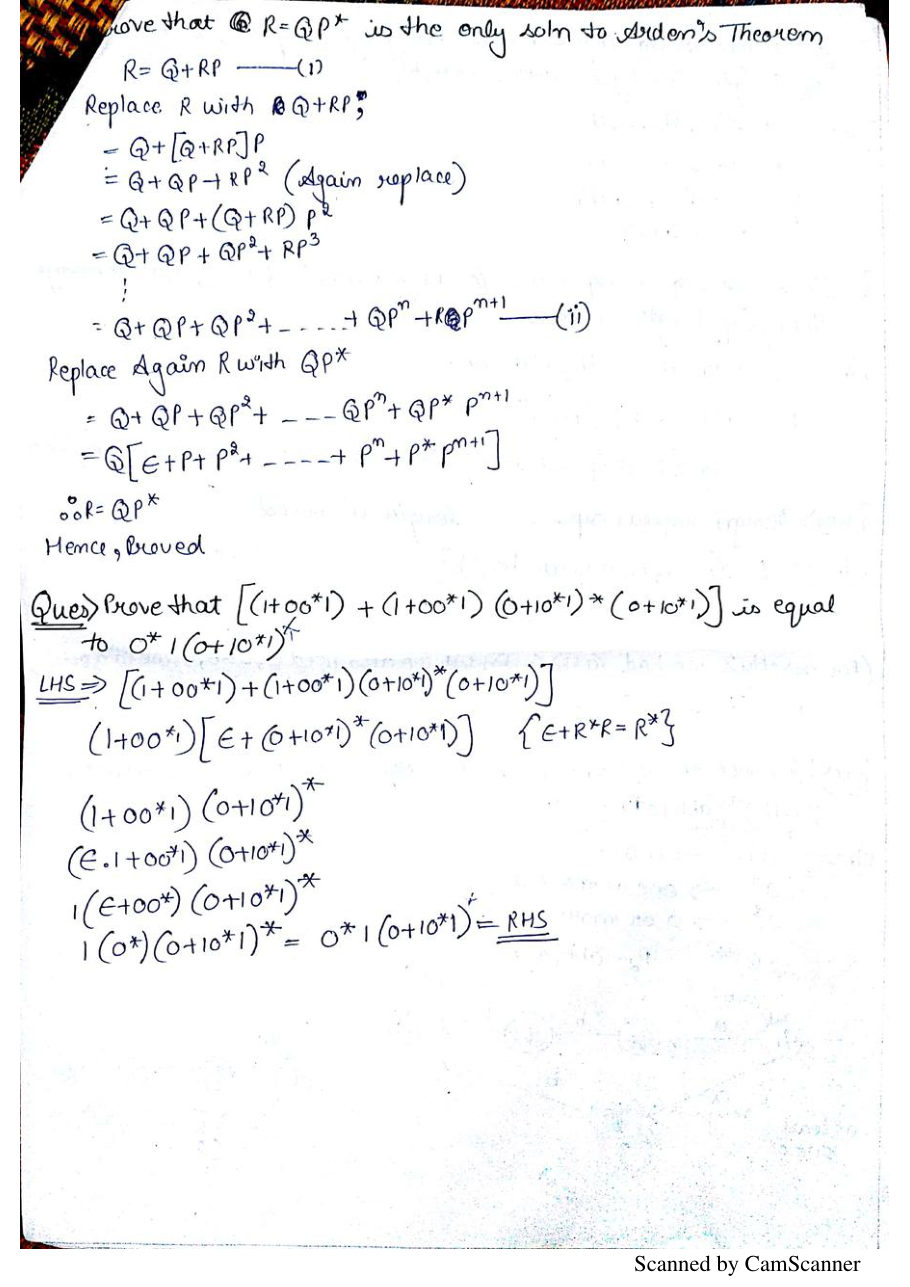 rove that R=QP* is the only soln to Arden's Theorem
R= Q+RP ——(1)
Replace R with Q+RP;
= Q+[Q+RP]P
= Q+QP+RP² (Again replace)
= Q+QP+(Q+RP) P²
= Q+QP+QP²+RP³
⋮
= Q+QP+QP²+-----+QPⁿ+RPⁿ⁺¹——(ii)
Replace Again R with QP*
= Q+QP+QP²+----QPⁿ+QP* Pⁿ⁺¹
= Q[ϵ+P+P²+-----+Pⁿ+P* Pⁿ⁺¹]
∴R= QP*
Hence, Proved
Ques> Prove that [(1+00*1) + (1+00*1) (0+10*1)* (0+10*1)] is equal
to 0* 1(0+10*1)*
LHS ⇒ [(1+00*1)+(1+00*1)(0+10*1)*(0+10*1)]
(1+00*1)[ϵ+(0+10*1)*(0+10*1)] {ϵ+R*R=R*}
(1+00*1) (0+10*1)*
(ϵ.1+00*1) (0+10*1)*
1(ϵ+00*) (0+10*1)*
1(0*)(0+10*1)* = 0* 1(0+10*1)* = RHS
Scanned by CamScanner